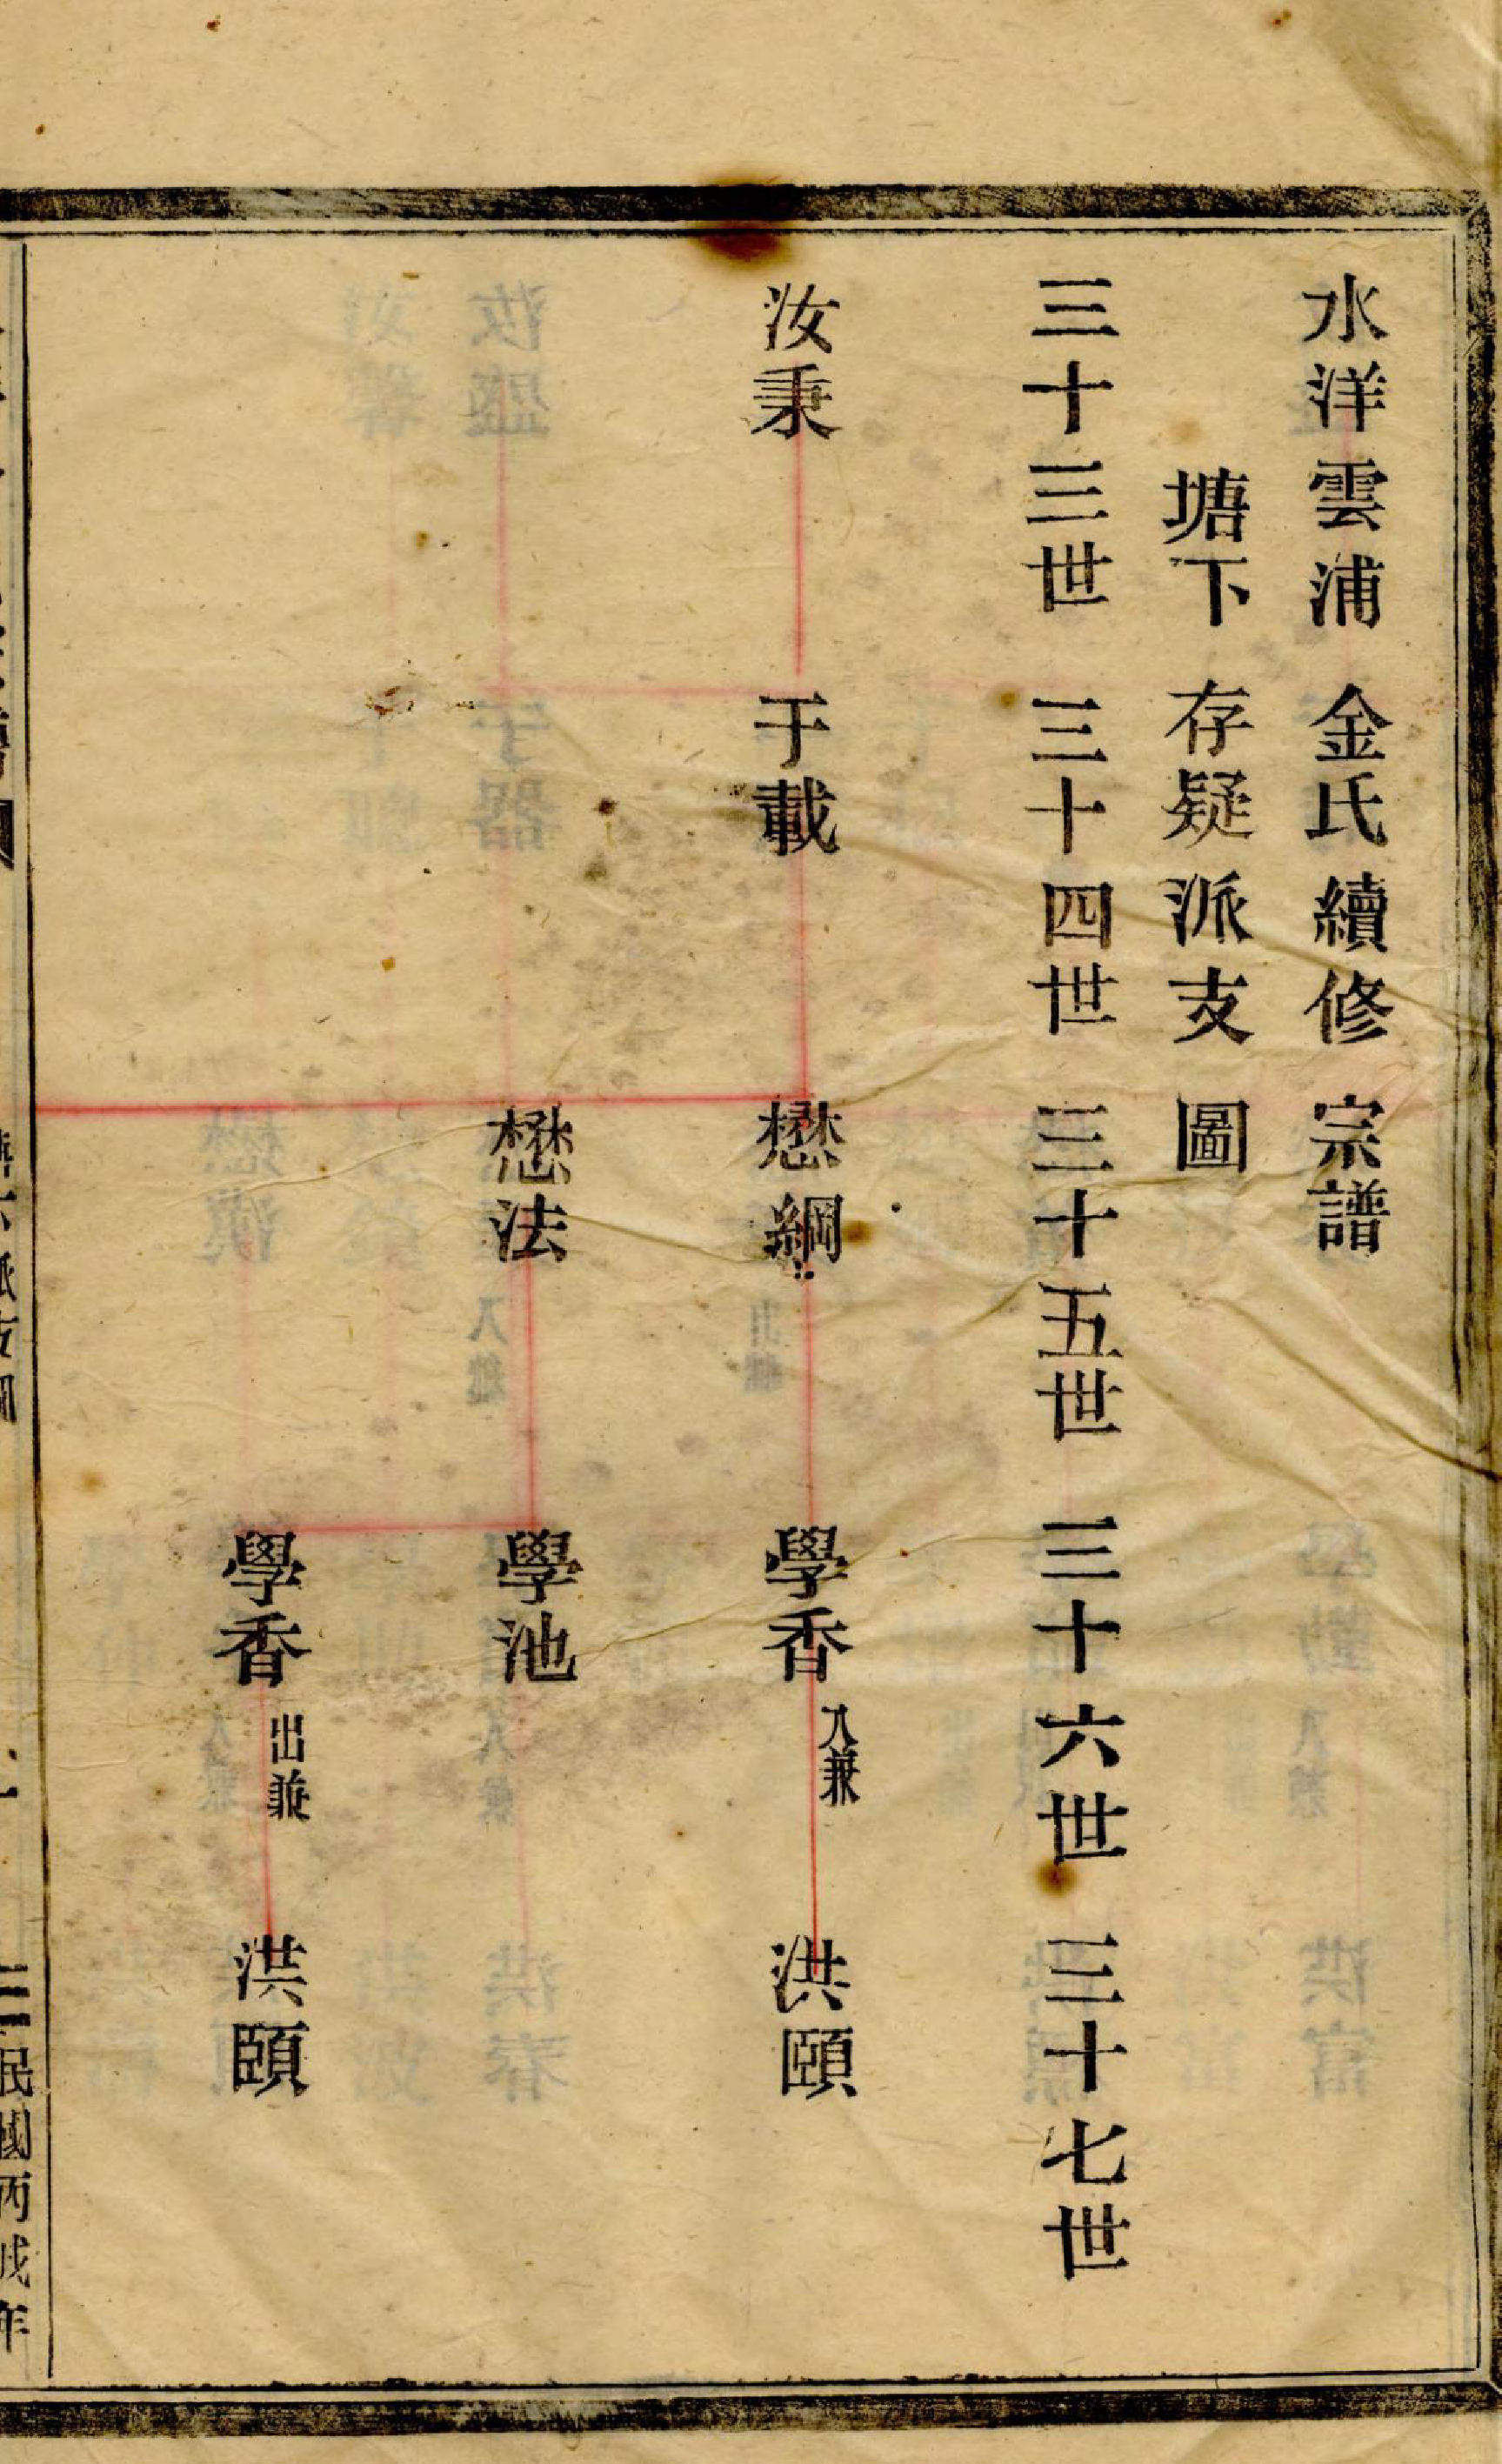 水洋雲浦金氏續修宗譜
塘下存疑派支圖
三十三世 三十四世 三十五世 三十六世 三十七世
汝秉 于載 懋綱 學香 入兼 洪頤
懋法 學池
學香 出兼 洪頤
民國丙戌年